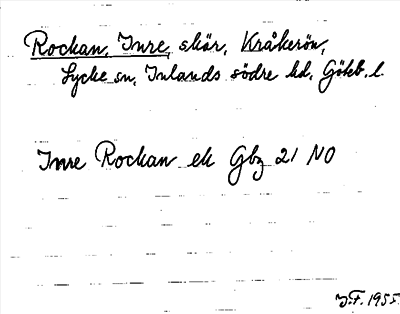 Rockan, Inre, skär, Kråkerön,
Lycke sn, Inlands södre hd, Göteb. l.
Inre Rockan ek Gbg 21 NO
J.F. 1955.